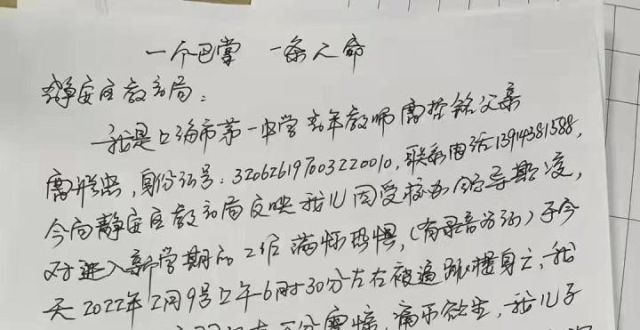 一个巴掌 一条人命
静安区教育局:
我是上海市第一中学青年教师 父亲
身份证号:320626197003220010,联系电话13914381588,
今向静安区教育局反映我儿因受校办领导欺凌,
对进入新学期的工作满怀恐惧,(有录音为证)于今
天2022年2月9号上午6时30分左右被逼跳楼身亡,我
痛不欲生,我儿子